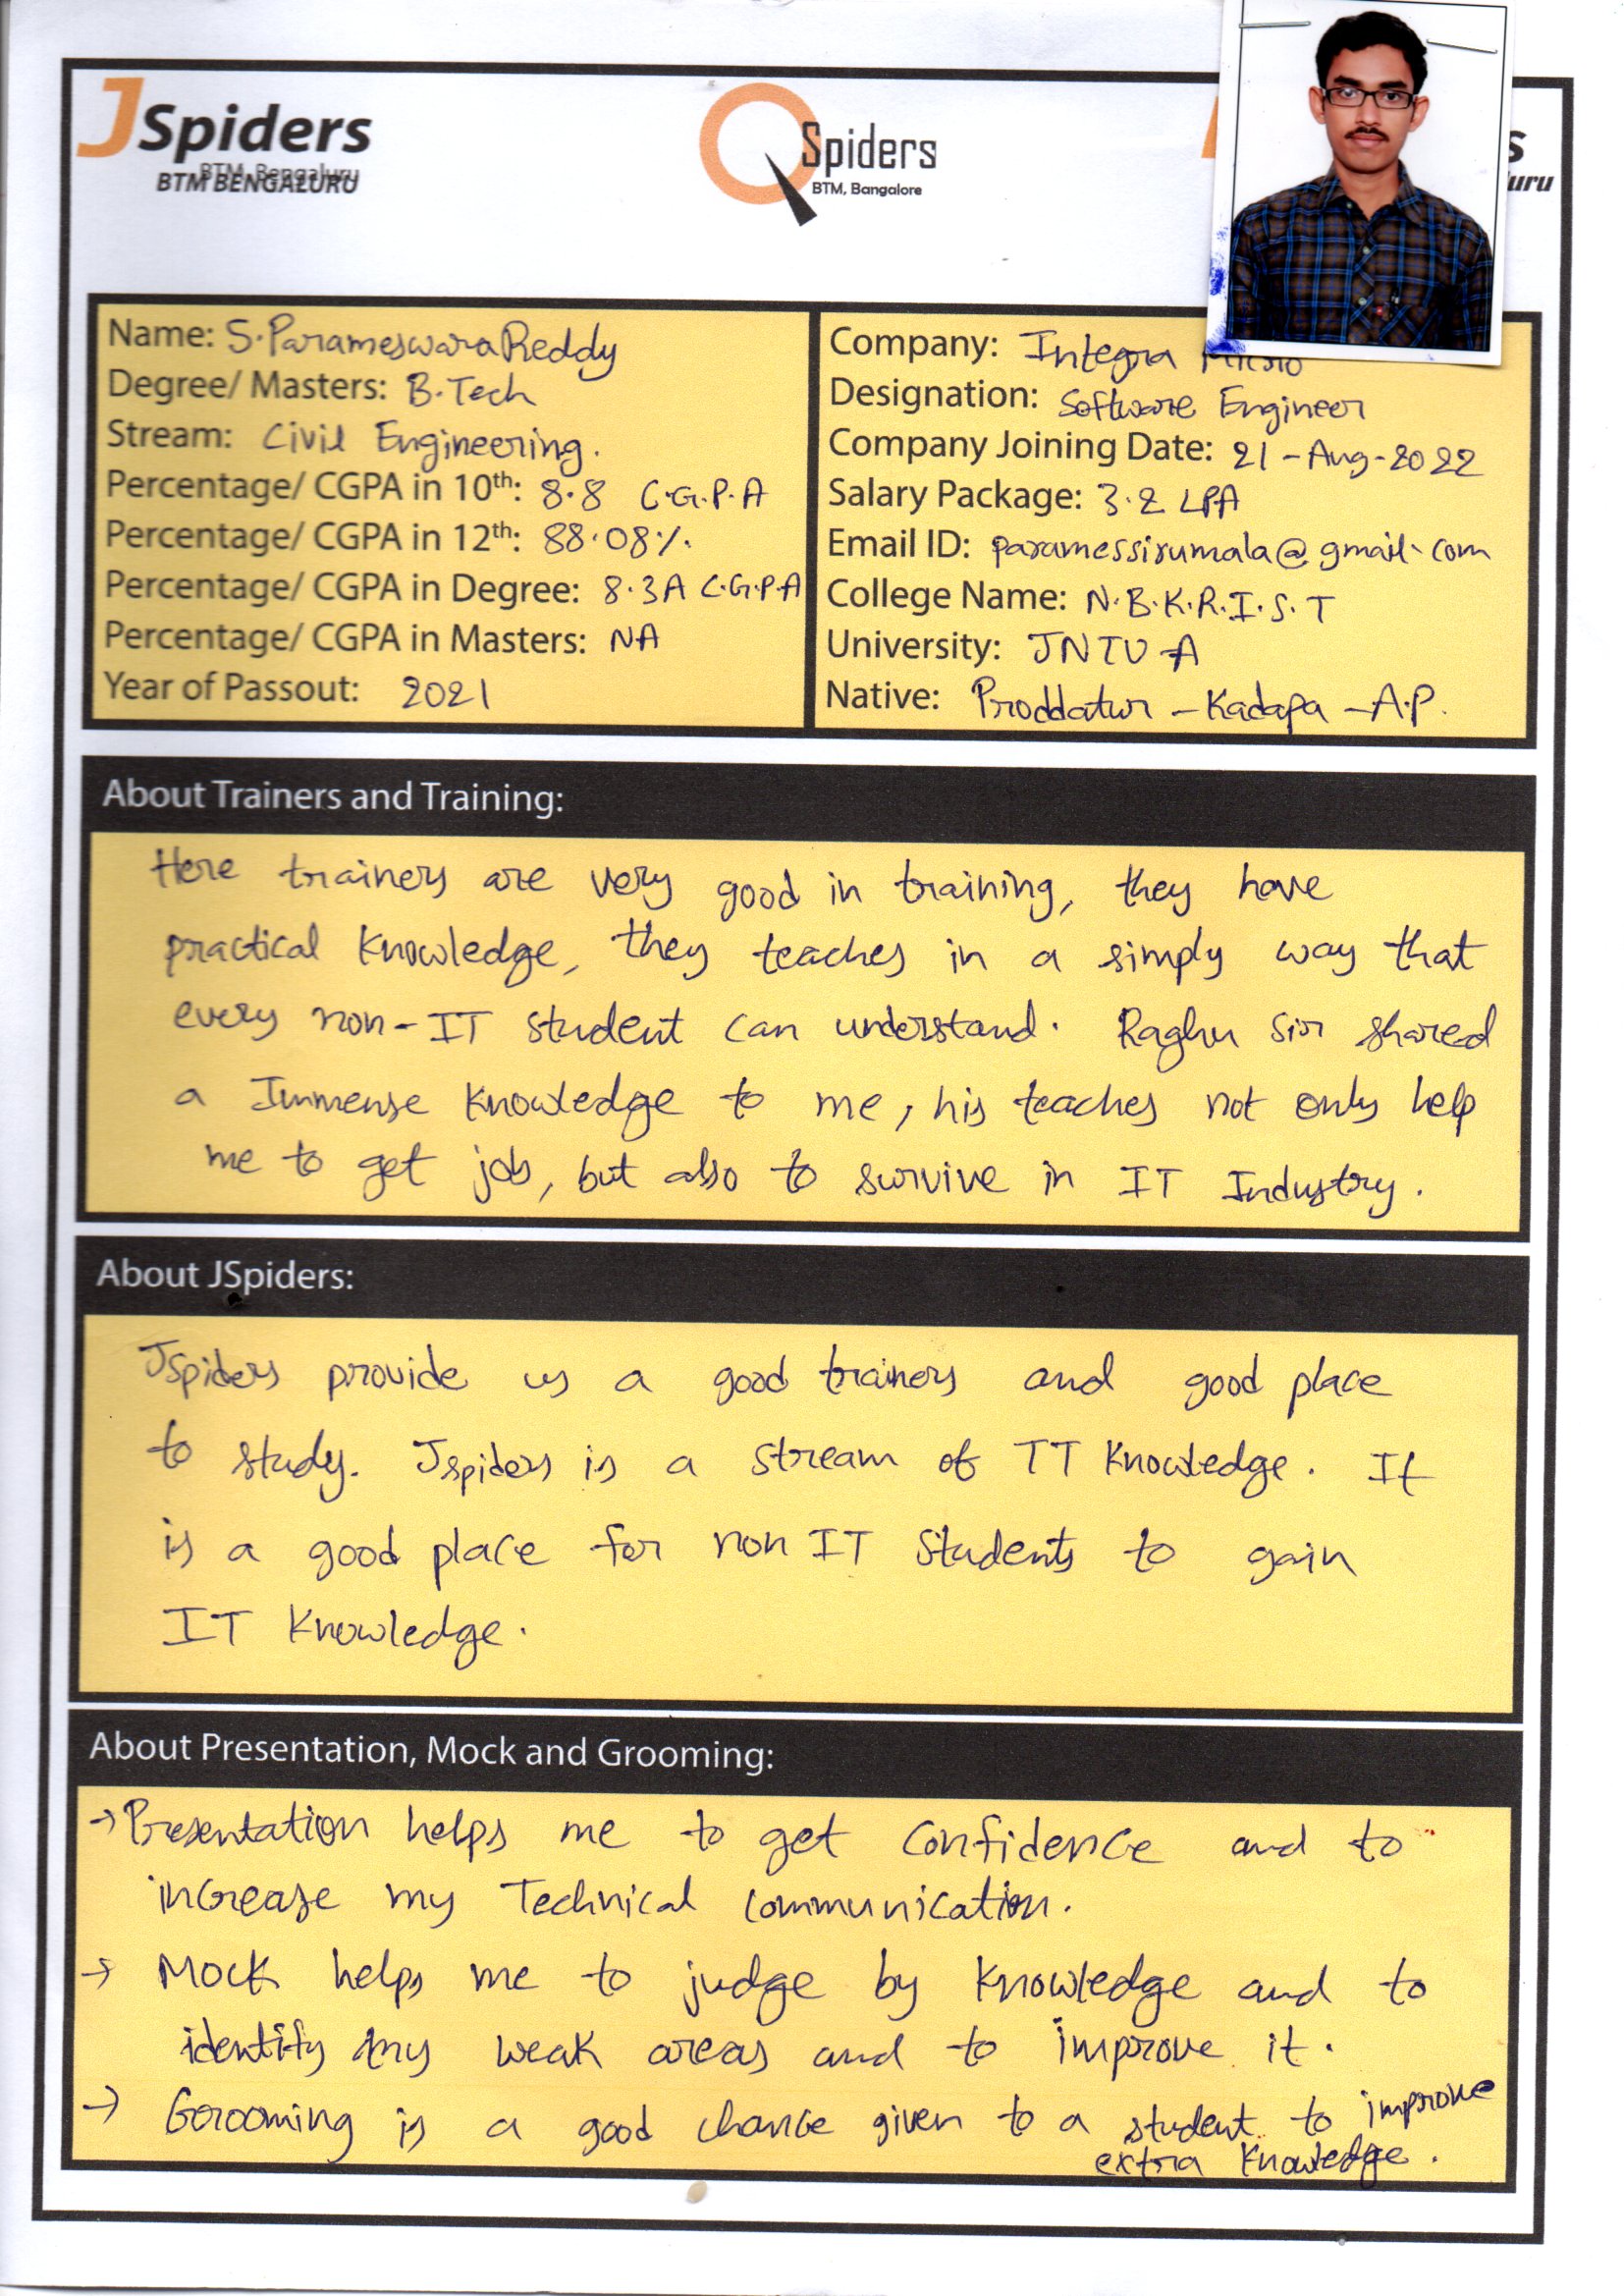 JSpiders
BTM, Bengaluru
BTM BENGALURU
QSpiders
BTM, Bangalore
s
uru
Name: S.Parameswara Reddy
Degree/ Masters: B.Tech
Stream: Civil Engineering.
Percentage/ CGPA in 10th: 8.8 C.G.P.A
Percentage/ CGPA in 12th: 88.08%.
Percentage/ CGPA in Degree: 8.3A C.G.P.A
Percentage/ CGPA in Masters: NA
Year of Passout: 2021
Company: Integra Micro
Designation: Software Engineer
Company Joining Date: 21-Aug-2022
Salary Package: 3.2 LPA
Email ID: paramessirumala@gmail.com
College Name: N.B.K.R.I.S.T
University: JNTU-A
Native: Proddatur - Kadapa - A.P.
About Trainers and Training:
Here trainers are very good in training, they have
practical knowledge, they teaches in a simply way that
every non-IT student can understand. Raghu sir shared
a Immense knowledge to me, his teaches not only help
me to get job, but also to survive in IT Industry.
About JSpiders:
JSpiders provide us a good trainers and good place
to study. Jspiders is a stream of IT knowledge. It
is a good place for non IT students to gain
IT Knowledge.
About Presentation, Mock and Grooming:
→Presentation helps me to get confidence and to
increase my Technical communication.
→ Mock helps me to judge by knowledge and to
identify my weak areas and to improve it.
→ Gorooming is a good chance given to a student to improve
extra knowledge.